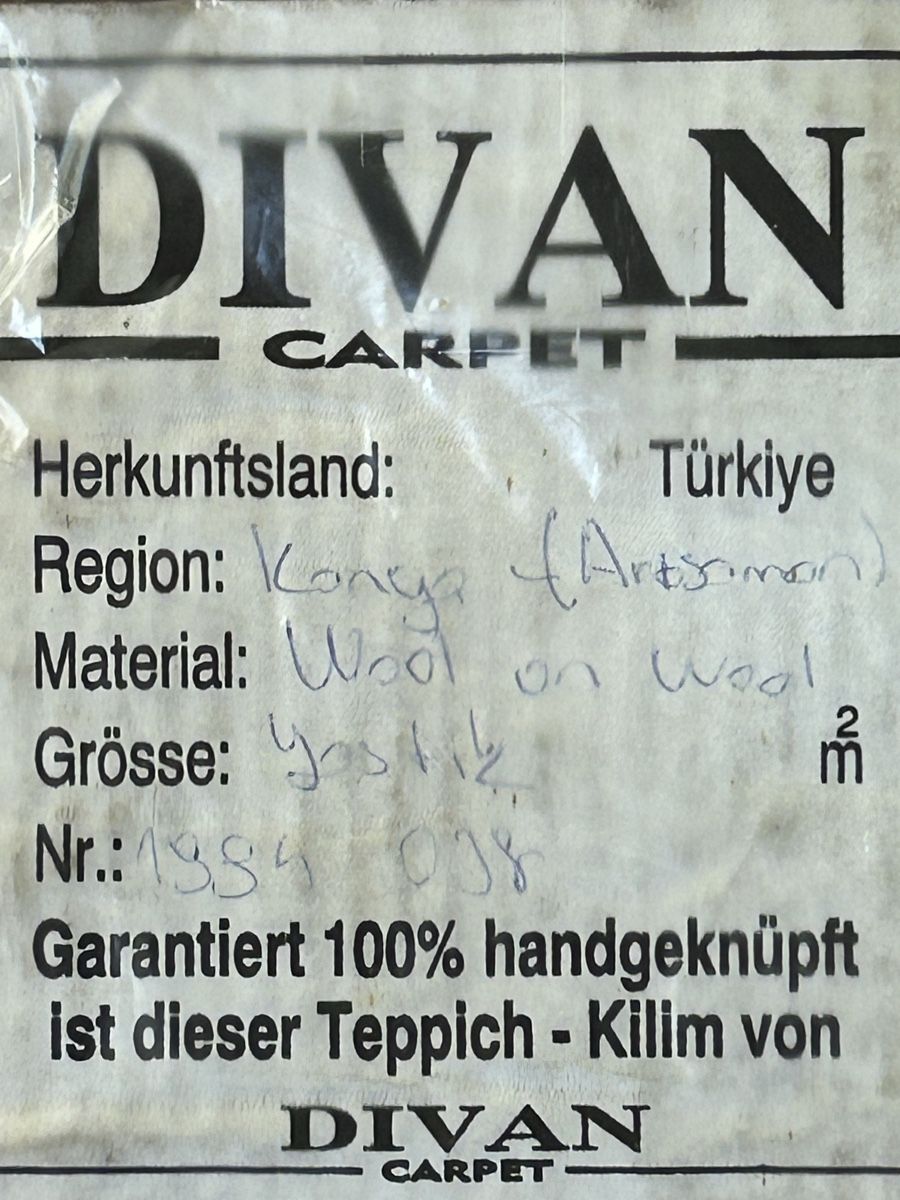 DIVAN
CARPET
Herkunftsland: Türkiye
Region: Konya
Material: Wool on wool
Grösse: Yastik m²
Nr.:
Garantiert 100% handgeknüpft
ist dieser Teppich - Kilim von
DIVAN
CARPET